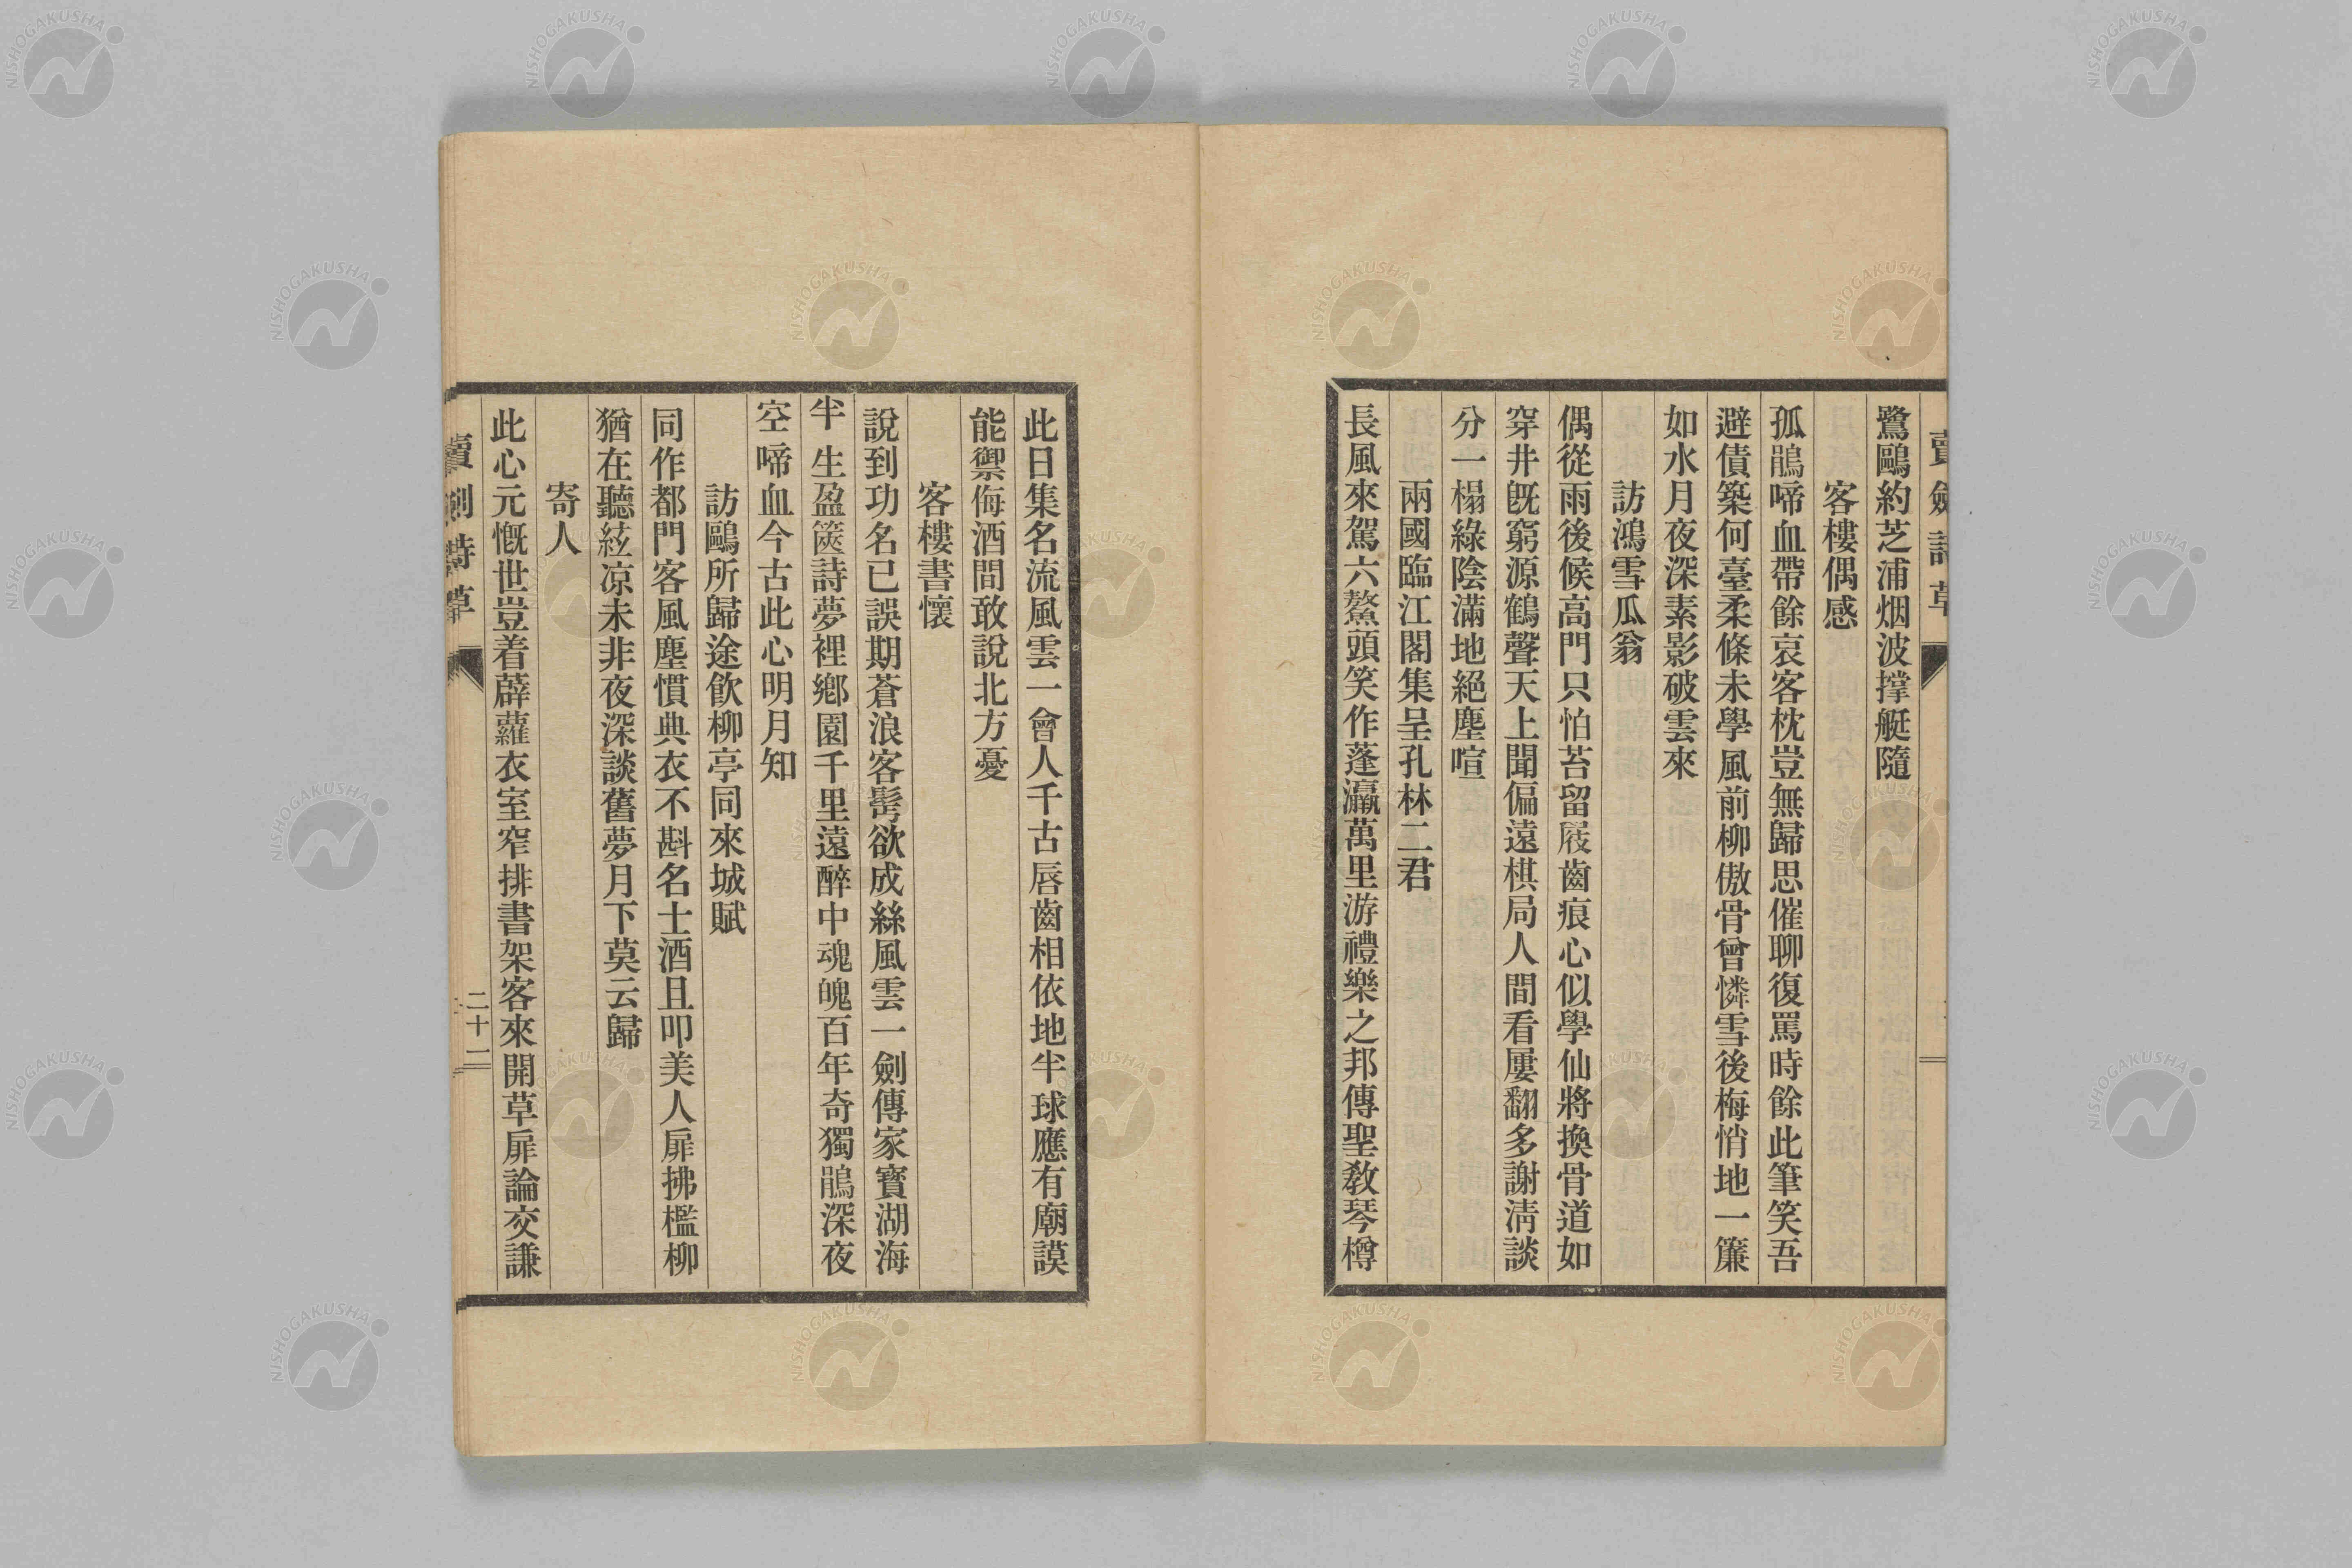 賣劍詩草
鷺鷗約芝浦烟波撑艇隨
客樓偶感
孤鵑啼血帶餘哀客枕豈無歸思催聊復罵時餘此筆笑吾
避債築何臺柔條未學風前柳傲骨曾憐雪後梅悄地一簾
如水月夜深素影破雲來
訪鴻雪瓜翁
偶從雨後候高門只怕苔留屐齒痕心似學仙將換骨道如
穿井既窮源鶴聲天上聞偏遠棋局人間看屢翻多謝淸談
分一榻綠陰滿地絕塵喧
兩國臨江閣集呈孔林二君
長風來駕六鰲頭笑作蓬瀛萬里游禮樂之邦傳聖敎琴樽
此日集名流風雲一會人千古唇齒相依地半球應有廟謨
能禦侮酒間敢說北方憂
客樓書懷
說到功名已誤期蒼浪客髩欲成絲風雲一劍傳家寶湖海
半生盈篋詩夢裡鄕園千里遠醉中魂魄百年奇獨鵑深夜
空啼血今古此心明月知
訪鷗所歸途飮柳亭同來城賦
同作都門客風塵慣典衣不斟名士酒且叩美人扉拂檻柳
猶在聽絃凉未非夜深談舊夢月下莫云歸
寄人
此心元慨世豈着薜蘿衣室窄排書架客來開草扉論交謙
賣劍詩草
二十二
NISHOGAKUSHA